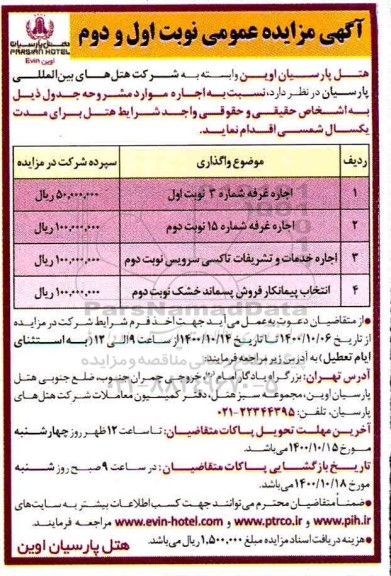 آگهی مزایده عمومی نوبت اول و دوم
هتل پارسیان
PARSIAN HOTEL
اوین Evin
هتل پارسیان اوین وابسته به شرکت هتل‌های بین‌المللی
پارسیان در نظر دارد، نسبت به اجاره موارد مشروحه جدول ذیل
به اشخاص حقیقی و حقوقی واجد شرایط هتل برای مدت
یکسال شمسی اقدام نماید.
ردیف موضوع واگذاری سپرده شرکت در مزایده
۱ اجاره غرفه شماره ۳ نوبت اول ۵۰,۰۰۰,۰۰۰ ریال
۲ اجاره غرفه شماره ۱۵ نوبت دوم ۱۰۰,۰۰۰,۰۰۰ ریال
۳ اجاره خدمات و تشریفات تاکسی سرویس نوبت دوم ۱۰۰,۰۰۰,۰۰۰ ریال
۴ انتخاب پیمانکار فروش پسماند خشک نوبت دوم ۱۰۰,۰۰۰,۰۰۰ ریال
ParsNamadData
• از متقاضیان دعوت به عمل می‌آید جهت اخذ فرم شرایط شرکت در مزایده
از تاریخ ۱۴۰۰/۱۰/۰۶ تا تاریخ ۱۴۰۰/۱۰/۱۴ از ساعت ۹ الی ۱۲ (به استثنای
ایام تعطیل) به آدرس زیر مراجعه فرمایند:
آدرس تهران: بزرگراه یادگار امام (ره)، خروجی چمران جنوب، ضلع جنوبی هتل
پارسیان اوین، مجموعه سبز هتل، دفتر کمیسیون معاملات شرکت هتل‌های
پارسیان، تلفن: ۲۲۳۴۴۳۹۵-۰۲۱
آخرین مهلت تحویل پاکات متقاضیان: تا ساعت ۱۲ ظهر روز چهارشنبه
مورخ ۱۴۰۰/۱۰/۱۵ می‌باشد.
تاریخ بازگشایی پاکات متقاضیان: در ساعت ۹ صبح روز شنبه
مورخ ۱۴۰۰/۱۰/۱۸ می‌باشد.
• ضمناً متقاضیان محترم می‌توانند جهت کسب اطلاعات بیشتر به سایت‌های
www.pih.ir و www.ptrco.ir و www.evin-hotel.com مراجعه فرمایند.
• هزینه دریافت اسناد مزایده مبلغ ۱,۵۰۰,۰۰۰ ریال می‌باشد.
هتل پارسیان اوین